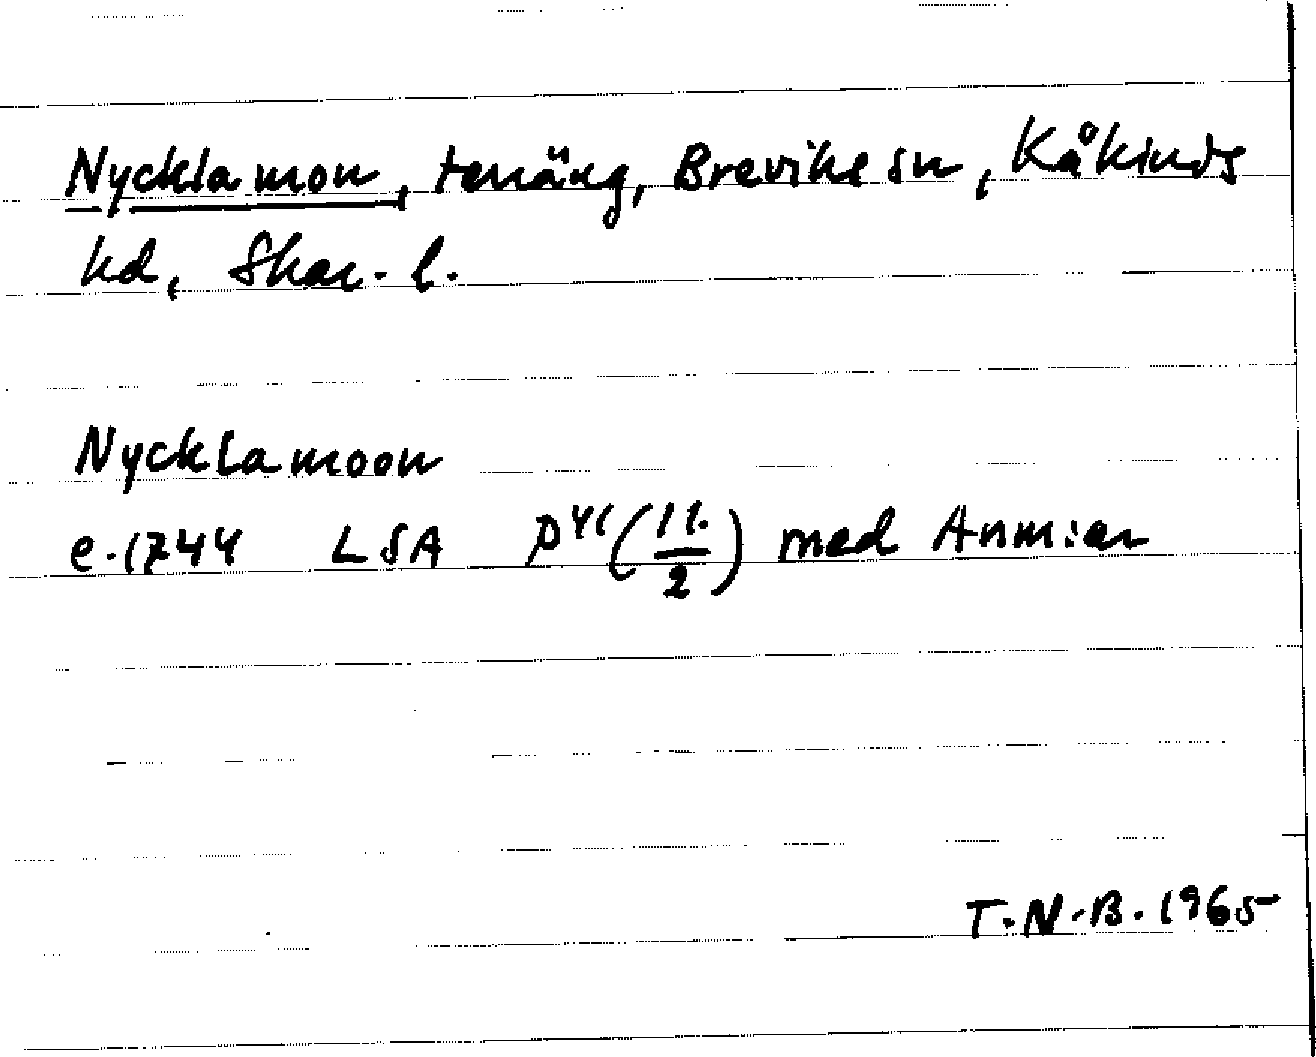 Nycklamon, terräng, Breviks sn, Kåkinds
hd, Skar. l.
Nycklamoon
e. 1744 LSA P41 (11. / 2) med Anm:ar
T.N.B. 1965